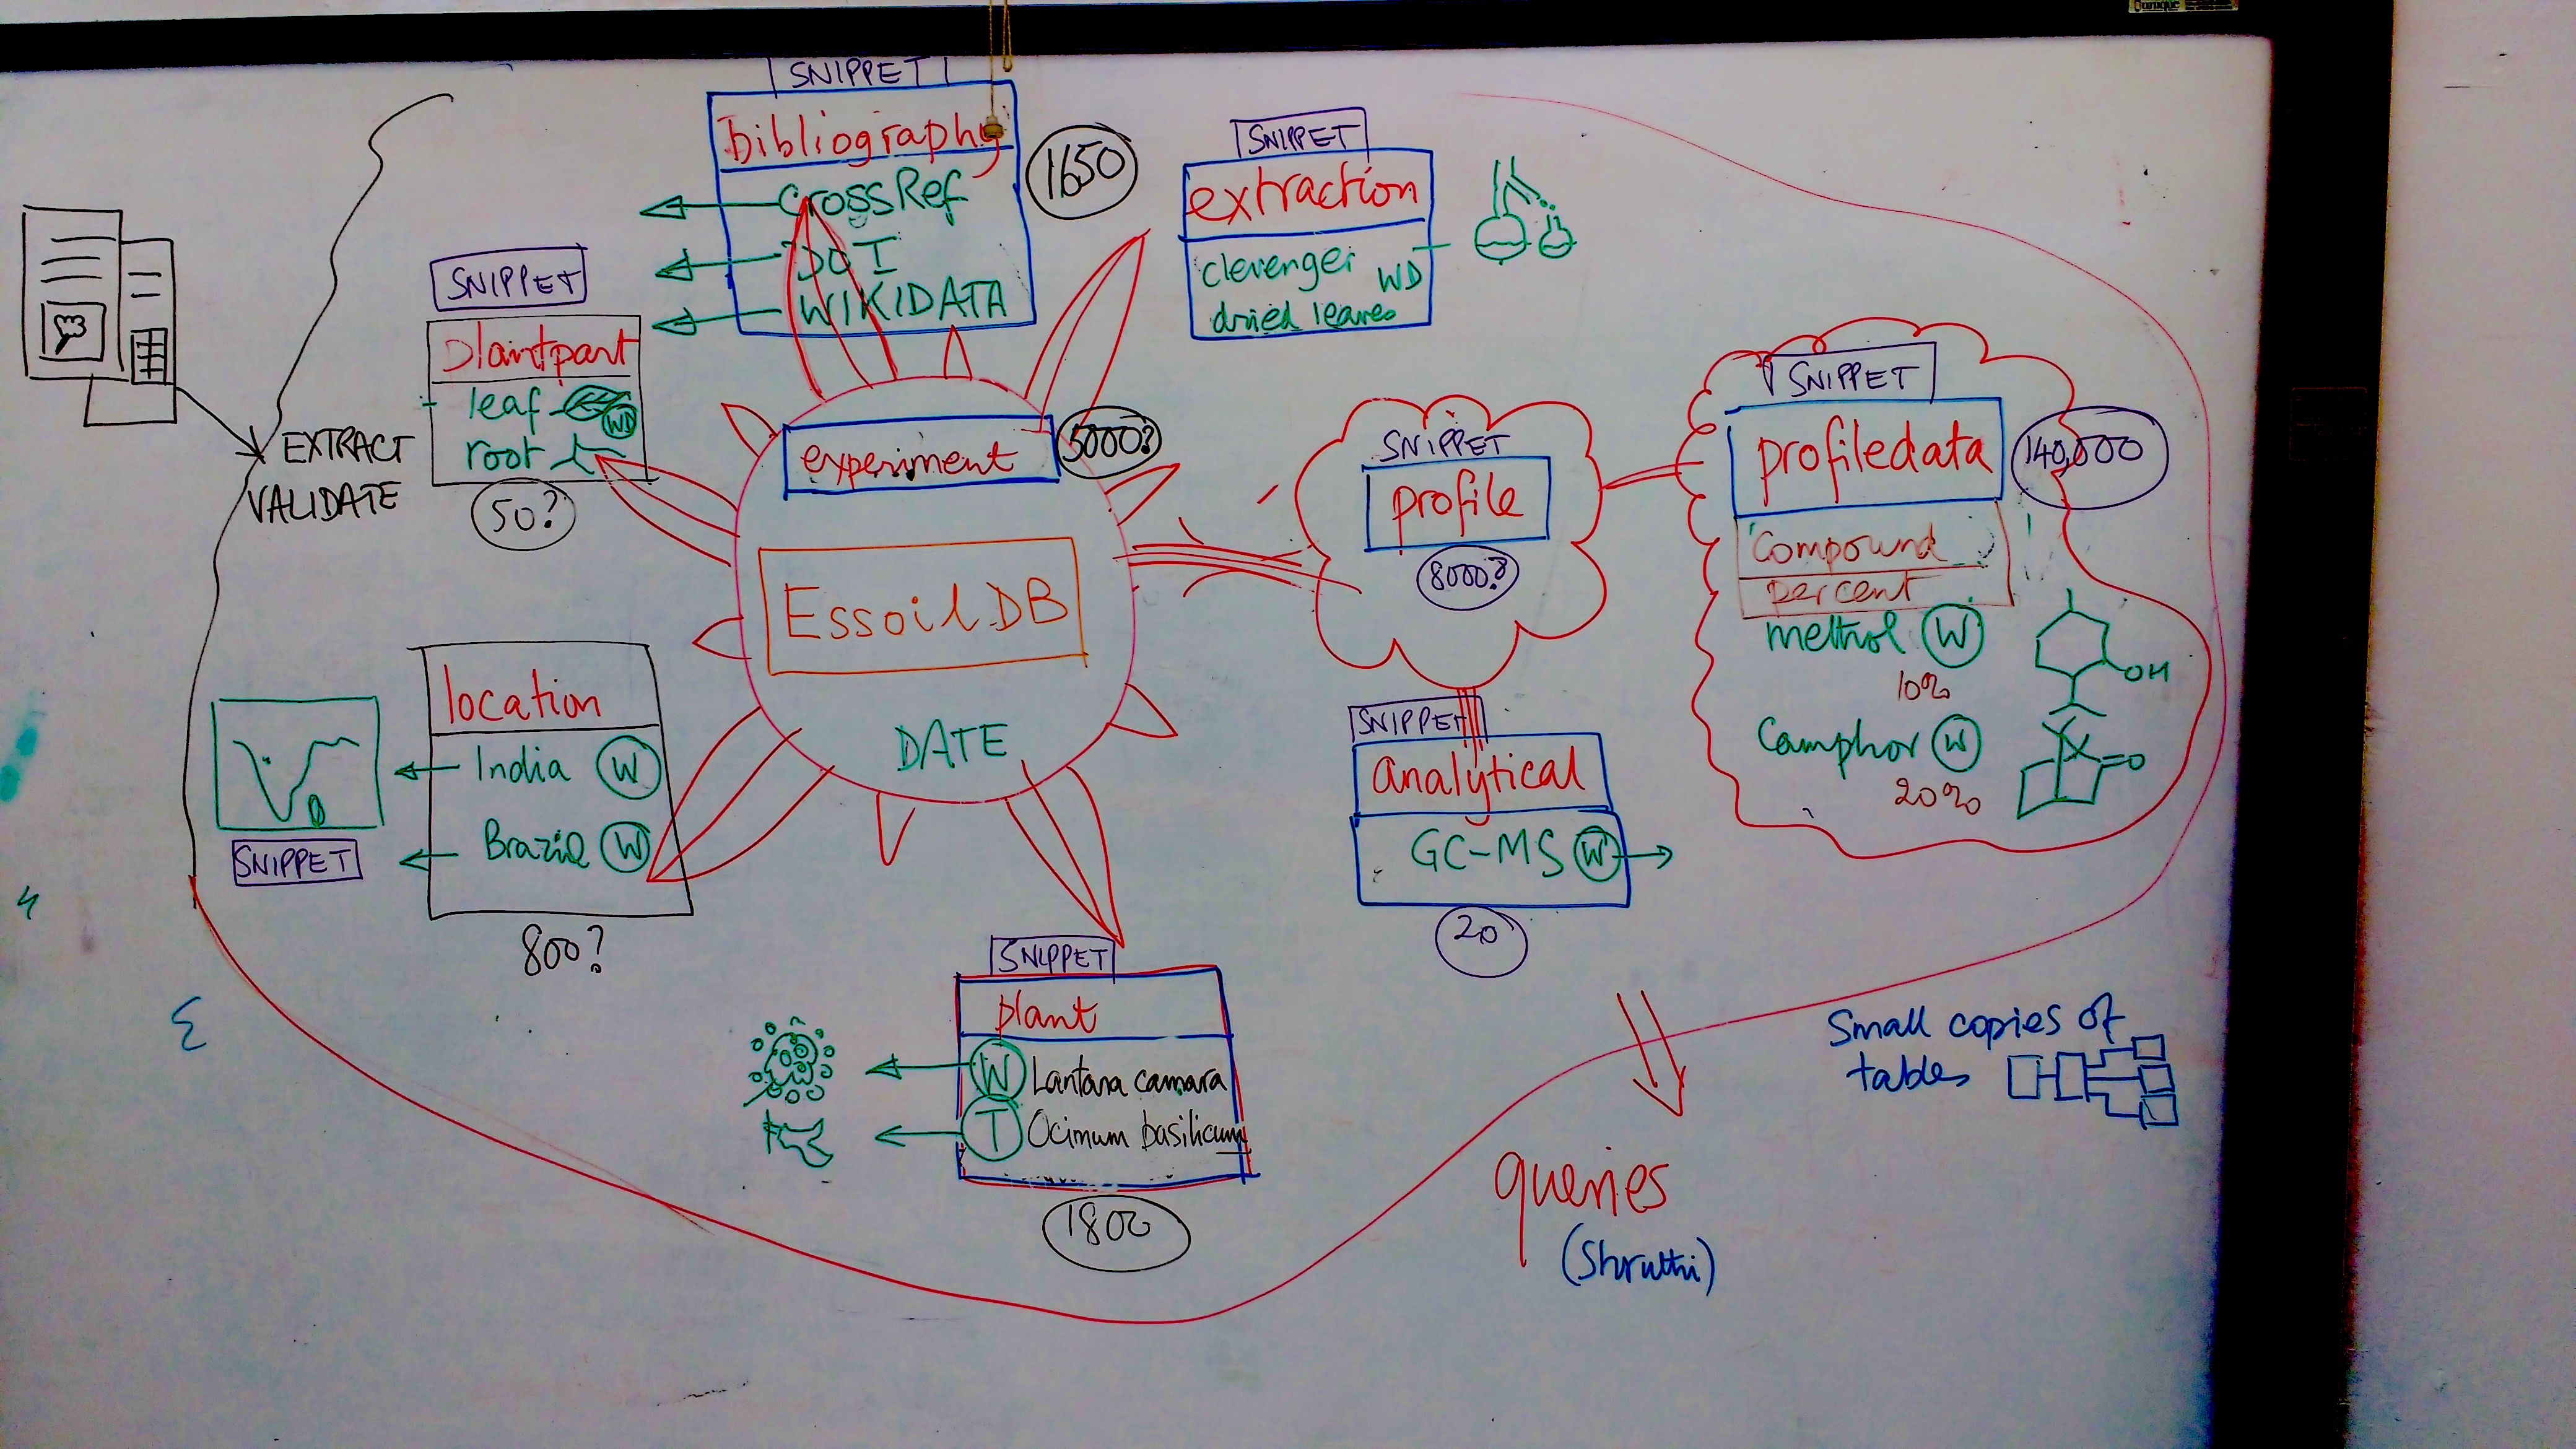 SNIPPET
bibliography
CrossRef
DOI
WIKIDATA
1650
SNIPPET
extraction
clevenger WD
dried leaves
SNIPPET
plantpart
leaf WD
root
50?
EXTRACT
VALIDATE
experiment
5000?
EssoilDB
DATE
SNIPPET
profile
8000?
SNIPPET
profiledata
140,000
Compound
percent
methol W
10%
OH
Camphor W
20%
O
location
India W
Brazil W
800?
SNIPPET
SNIPPET
analytical
GC-MS W
20
SNIPPET
plant
W Lantana camara
T Ocimum basilicum
1800
queries
(Shruthi)
Small copies of
tables